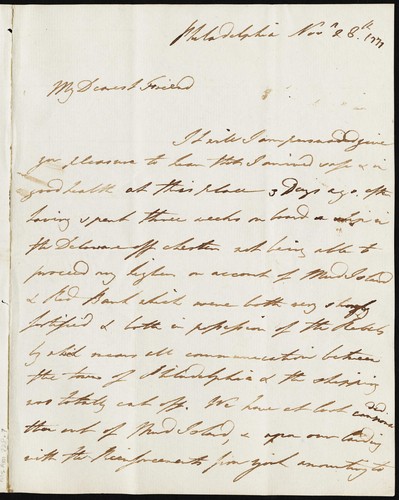 Philadelphia Novr 28th 1777
My Dearest Friend
It will I am persuaded give
you pleasure to hear that I arrived safe & in
good health at this place 3 Days ago. after
having spent three weeks on board a ship in
the Delaware off Chester not being able to
proceed any higher on account of Mud Island
& Red Bank which were both very strongly
fortified & both in possession of the Rebels
by which means all communication between
the town of Philadelphia & the shipping
was totally cut off. We have at last cannonaded
them out of Mud Island, & upon our landing
with the Reinforcements from York amounting to